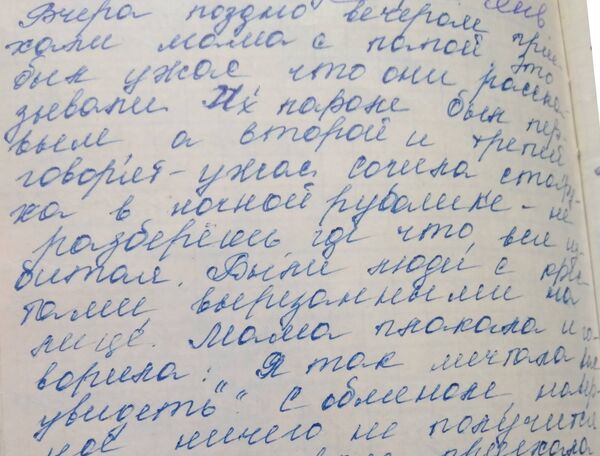 Вчера поздно вечером прие
хали мама с папой это
был ужас что они расска-
зывали. Их паром был пер-
вым а второй и третий
говорят-ужас. сошла стару
ха в ночной рубашке - не
разберёшь где что, вся из
битая. Были люди с крес
тами вырезанными на
лице. Мама плакала и го-
ворила: "Я так мечтала
увидеть". С обменом, навер
ное ничего не получится